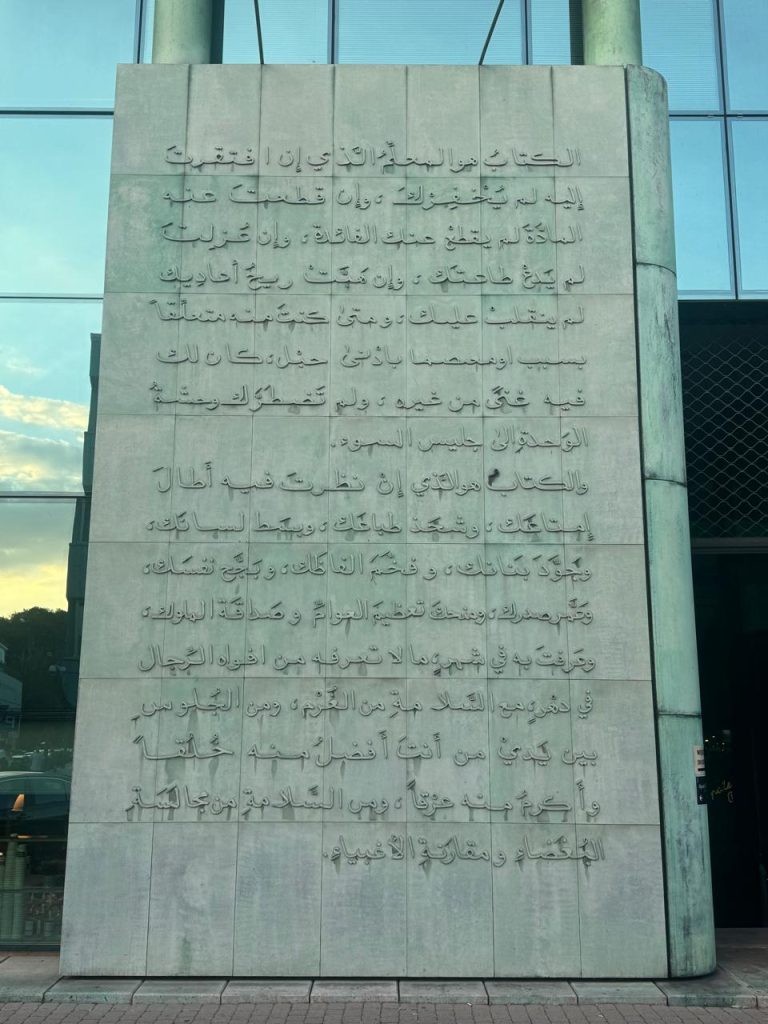 الكتابُ هو المعلّمُ الّذي إن افتقرتَ
إليه لم يُخْفِرْكَ، وإن قطعتَ عنه
المادّةَ لم يقطعْ عنك الفائدة، وإن عُزلتَ
لم يَدَعْ طاعتكَ، وإن هَبَّتْ ريحُ أعاديك
لم ينقلبْ عليكَ، ومتى كنتَ منه متعلّقاً
بسبب او معتصما بأدْنى حبْل، كان لك
فيه غنًى من غيره، ولم تَضطرَّك وحشةُ
الوَحدةِ إلى جليس السوء.
والكتاب هو الّذي إنْ نظرتَ فيه أطالَ
إمتاعَكَ، وشحَذ طباعَكَ، وبسط لسانَك،
وجَوَّدَ بَنانك، و فخَّمَ الفاظَك، وبَجَّح نفسَكَ،
وعَمَّر صدرك، ومنحكَ تعظيمَ العوامِّ و صَداقَةَ الملوك،
وعَرفتَ به في شهرٍ، ما لا تعرفه من افواه الرِّجال
في دهْرٍ، مع السَّلامةِ من الغُرْم، ومن الجُلوسِ
بين يَديْ من أنتَ أفضلُ منه خُلُقاً
وأكرمُ منه عِرْقاً، ومن السَّلامةِ من مجالسَةِ
البُغَضاءِ ومقارنةِ الأغبياءِ.